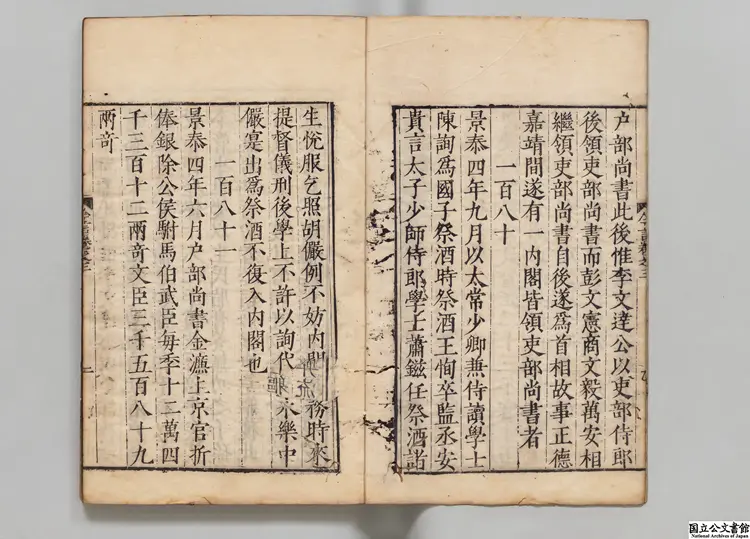 户部尚書此後惟李文達公以吏部侍郎
後領吏部尚書而彭文憲商文毅萬安相
繼領吏部尚書自後遂爲首相故事正德
嘉靖間遂有一内閣皆領吏部尚書者
一百八十
景泰四年九月以太常少卿兼侍讀學士
陳詢爲國子祭酒時祭酒王恂卒監丞安
貴言太子少師侍郎學士蕭鎡任祭酒諸
生悅服乞照胡儼例不妨内閣務時來
提督儀刑後學上不許以詢代永樂中
儼寔出爲祭酒不復入内閣也
一百八十一
景泰四年六月户部尚書金濂上京官折
俸銀除公侯駙馬伯武臣每季十二萬四
千三百十二兩奇文臣三千五百八十九
兩奇
国立公文書館
National Archives of Japan